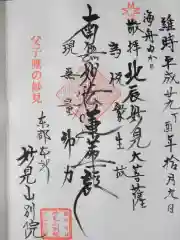 維時平成廿九丁酉年拾月九日
海舟ゆかり
敬拝 北辰妙見大菩薩
為悦衆生故
南無妙法蓮華経
現無量神力
父子鷹の妙見
東都本所
妙見山別院